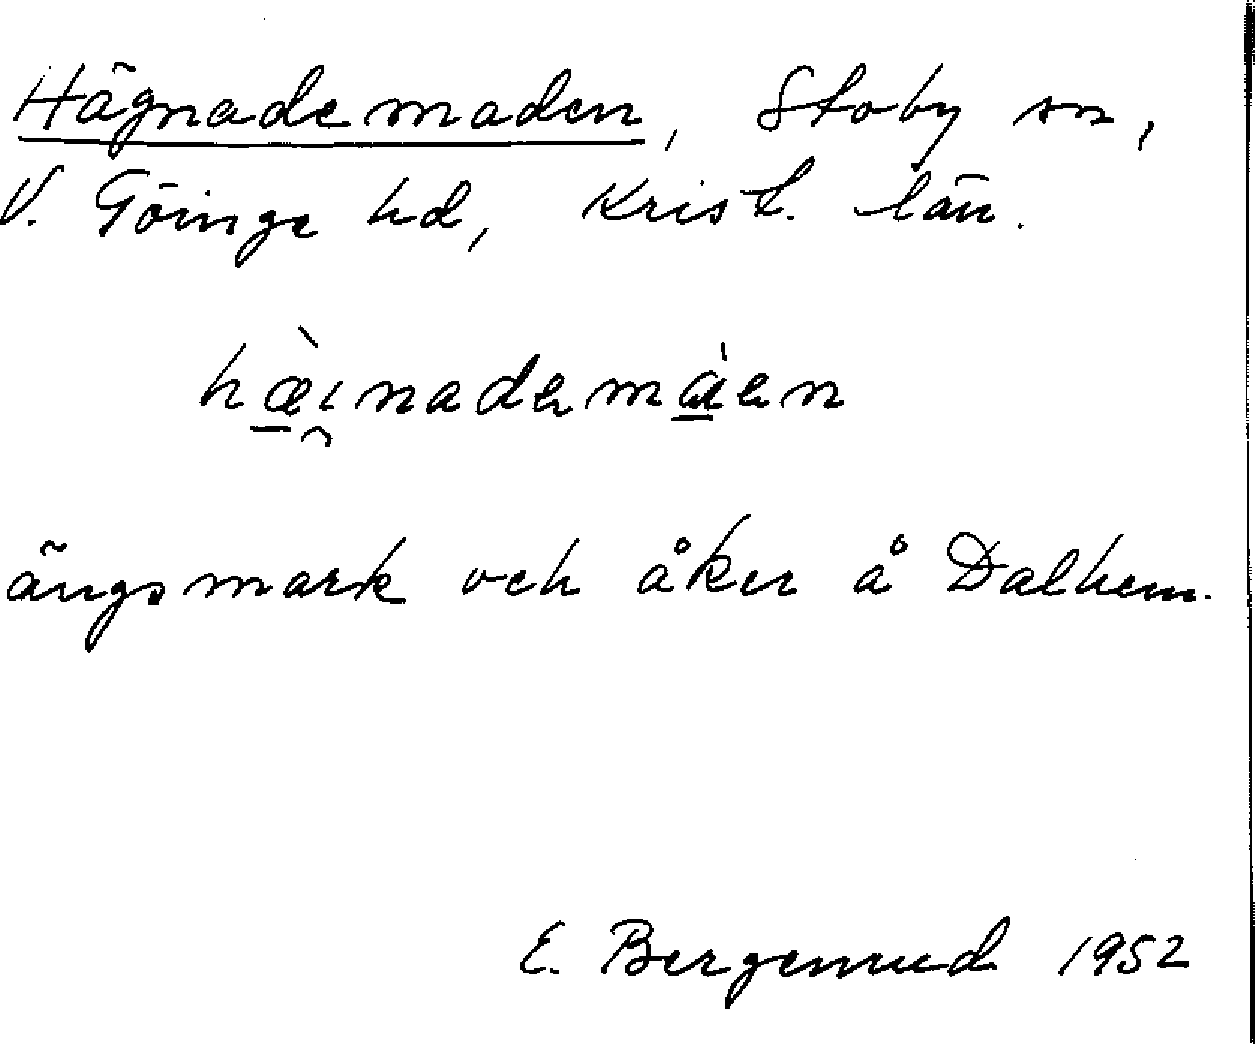 Hägnademaden, Stoby sn,
V. Göinge hd, Krist. län.
hæ̀i̯nademàen
ängsmark och åker å Dalhem.
E. Bergenrud 1952